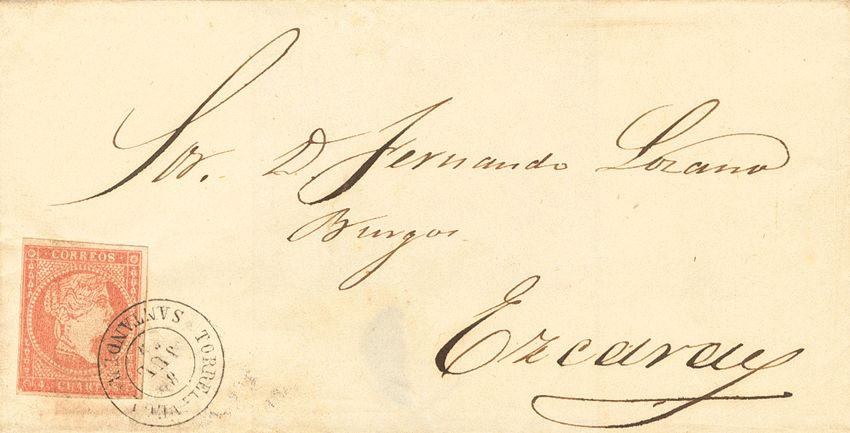 Sor. D. Fernando Lozano
Burgos
Ezcaray
CORREOS
4 CUARTOS
TORREL-AVEGA
SANTANDER